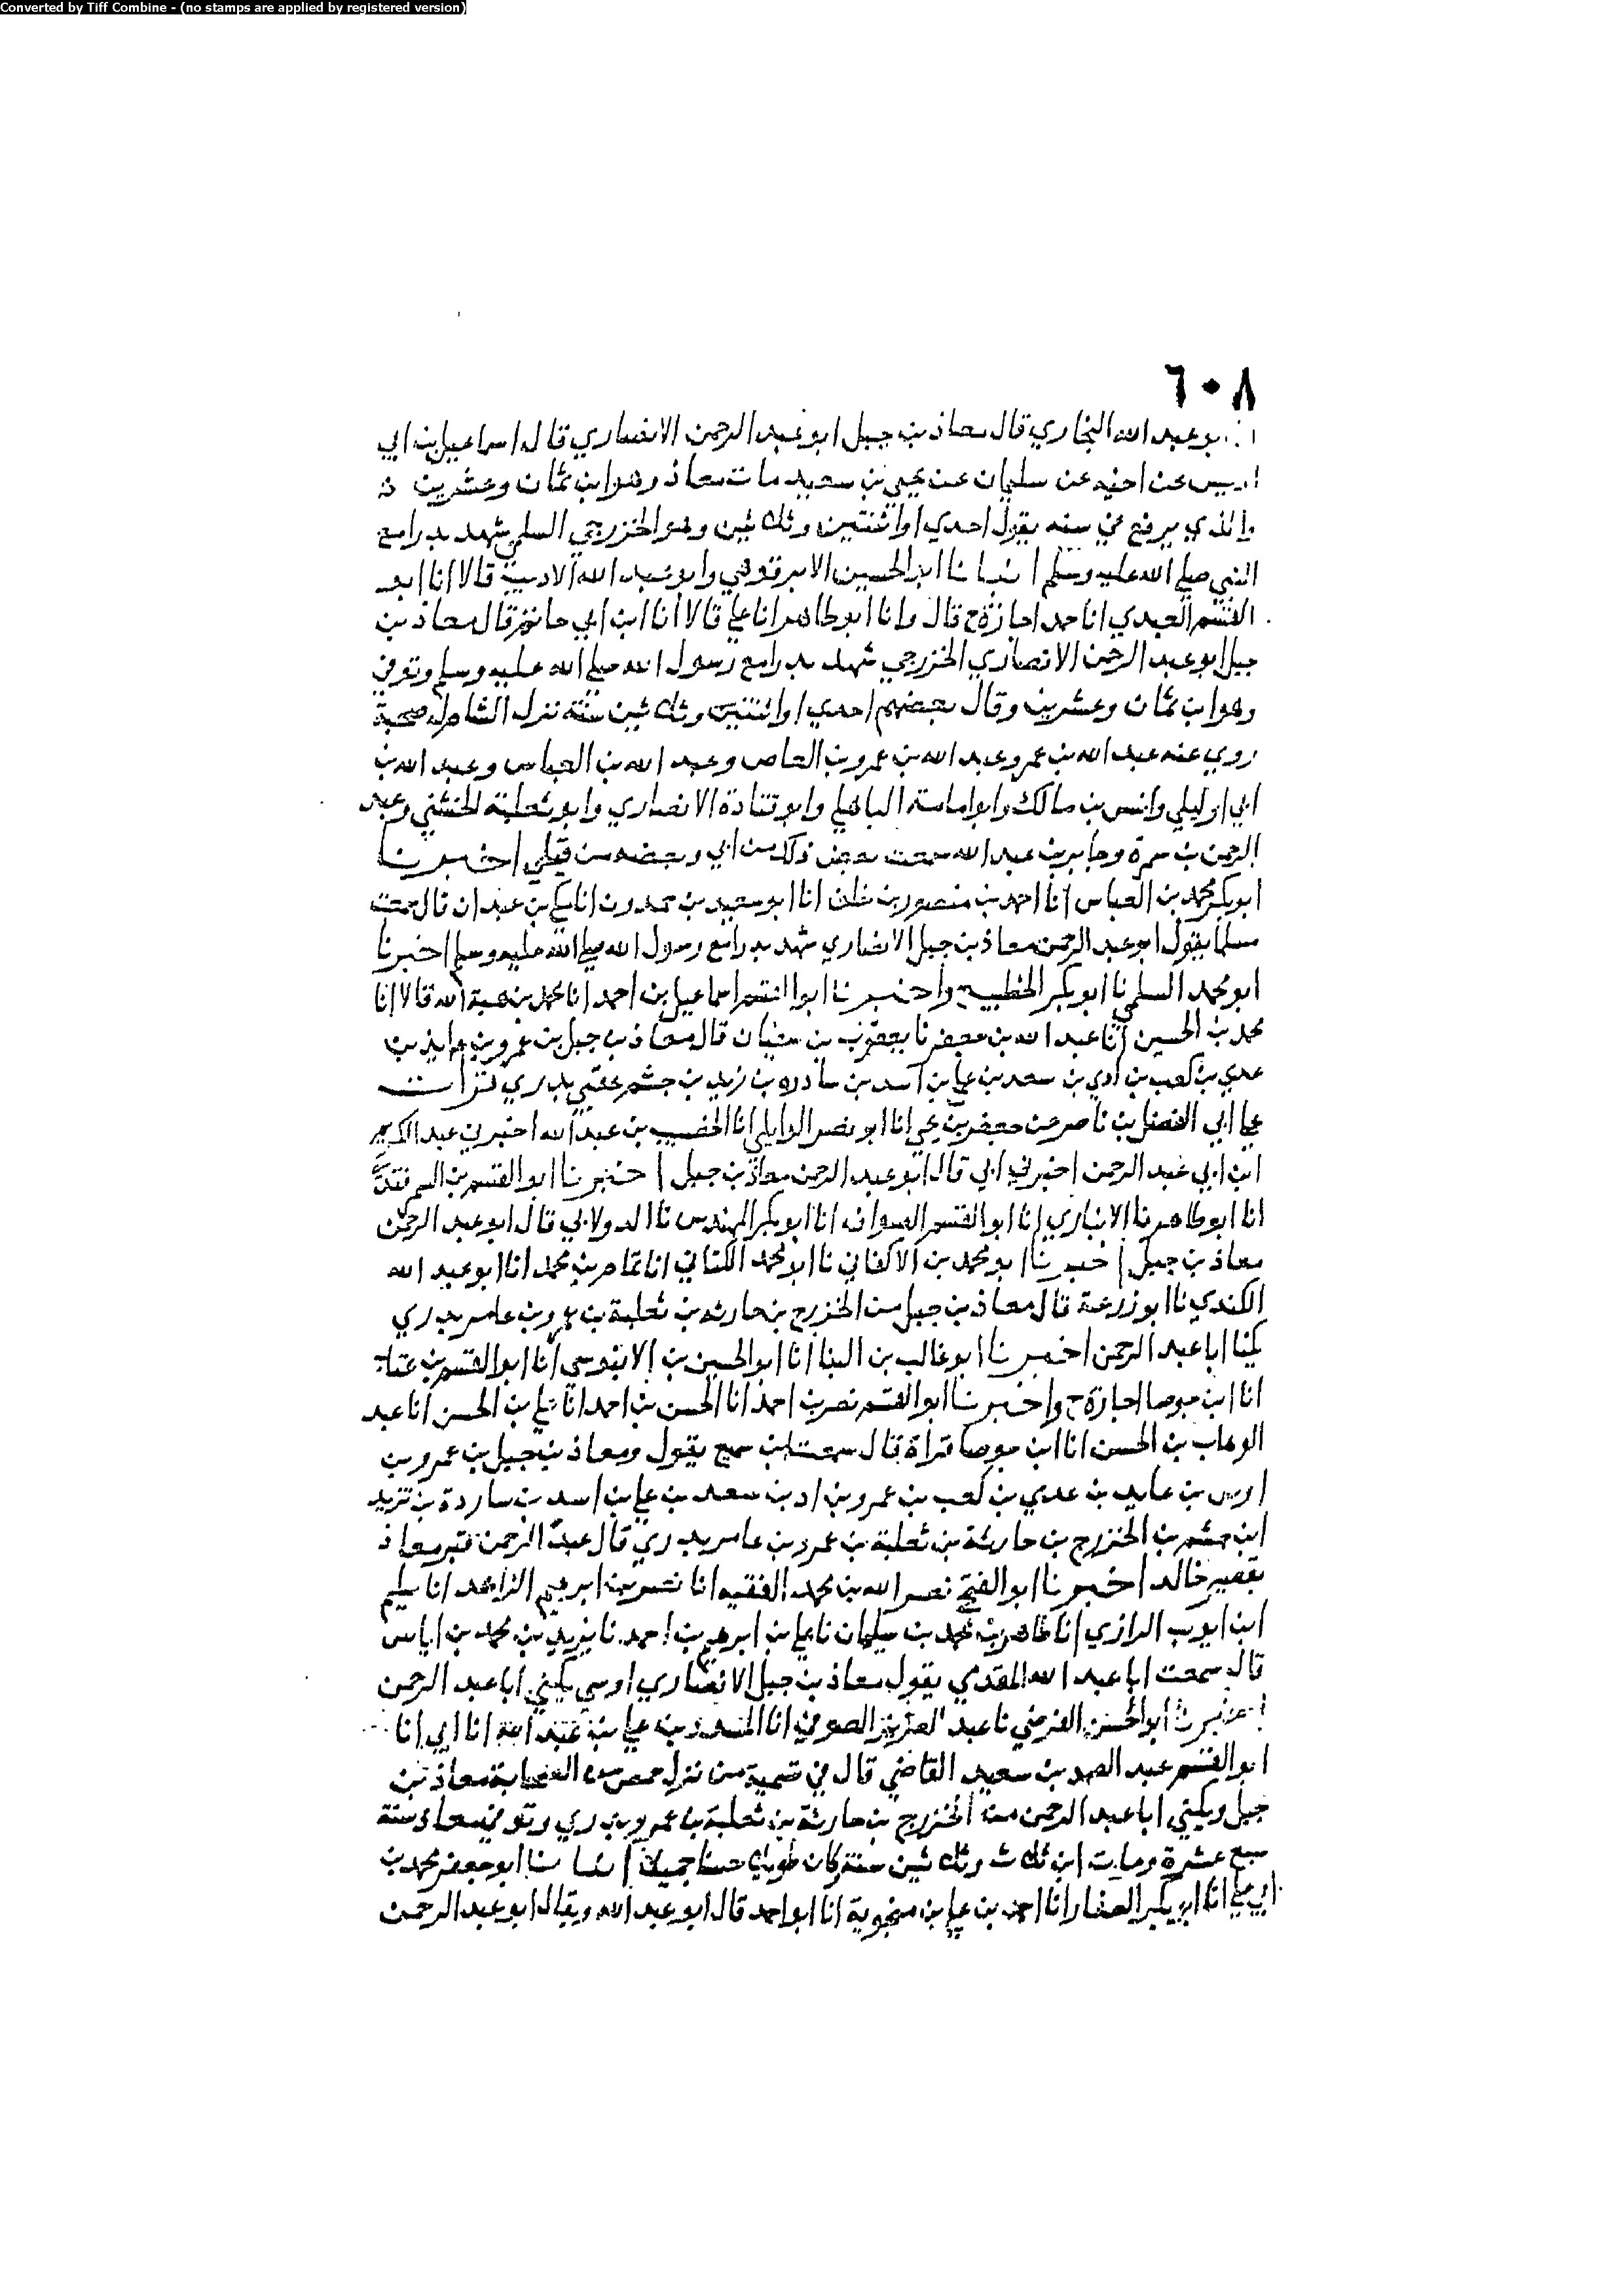 Converted by Tiff Combine - (no stamps are applied by registered version)
٦٠٨
ابو عبد الله البخاري قال معاذ بن جبل ابو عبد الرحمن الانصاري قال اسماعيل بن ابي
اويس عن اخيه عن سليمان عن يحيى بن سعيد مات معاذ وهو ابن ثمان وعشرين
والذي يرفع في سنه يقول احدى او اثنتين وثلاثين وهو الخزرجي السلمي شهد بدرا مع
النبي صلى الله عليه وسلم انبانا ابو الحسين الابرقوهي وابو عبد الله الاديب قالا انا ابو
القسم العبدي انا حمد اجازة ح قال وانا ابو طاهر انا علي قالا انا ابن ابي حاتم قال معاذ بن
جبل ابو عبد الرحمن الانصاري الخزرجي شهد بدرا مع رسول الله صلى الله عليه وسلم وتوفي
وهو ابن ثمان وعشرين وقال بعضهم احدى او اثنتين وثلاثين سنة نزل الشام له صحبة
روى عنه عبد الله بن عمر وعبد الله بن عمرو بن العاص وعبد الله بن العباس وعبد الله بن
ابي اوفى وانس بن مالك وابو امامة الباهلي وابو قتادة الانصاري وابو ثعلبة الخشني وعبد
الرحمن بن سمرة وجابر بن عبد الله سمعت بعض ذلك من ابي وبعضه من قبلي اخبرنا
ابو بكر محمد بن العباس انا احمد بن منصور بن خلف انا ابو سعيد بن حمدون انا مكي بن عبدان قال سمعت
مسلما يقول ابو عبد الرحمن معاذ بن جبل الانصاري شهد بدرا مع رسول الله صلى الله عليه وسلم اخبرنا
ابو محمد السلمي نا ابو بكر الخطيب واخبرنا ابو القسم اسماعيل بن احمد انا محمد بن هبة الله قالا انا
محمد بن الحسين انا عبد الله بن جعفر نا يعقوب بن سفيان قال معاذ بن جبل بن عمرو بن عايذ بن
عدي بن كعب بن ادي بن سعد بن علي بن اسد بن سادره بن زيد بن جشم عقبي بدري قرات
على ابي الفضل بن ناصر عن جعفر بن يحيى انا ابو نصر الوايلي انا الخصيب بن عبد الله اخبرني عبد الكريم
ابن ابي عبد الرحمن اخبرني ابي قال ابو عبد الرحمن معاذ بن جبل اخبرنا ابو القسم بن السمرقندي
انا ابو طاهر نا الانباري انا ابو القسم الصواف انا ابو بكر المهندس نا الدولابي قال ابو عبد الرحمن
معاذ بن جبل اخبرنا ابو محمد بن الاكفاني نا ابو محمد الكتاني انا تمام بن محمد انا ابو عبد الله
الكندي نا ابو زرعة قال معاذ بن جبل من الخزرج بن حارثه بن ثعلبة بن عمرو بن عامر بدري
يكنا ابا عبد الرحمن اخبرنا ابو غالب بن البنا انا ابو الحسين بن الابنوسي انا ابو القسم بن عتاب
انا ابن جوصا اجازة ح واخبرنا ابو القسم نصر بن احمد انا الحسن بن احمد انا علي بن الحسن انا عبد
الوهاب بن الحسن انا ابن جوصا قراة قال سمعت ابن سميع يقول ومعاذ بن جبل بن عمرو بن
اوس بن عايد بن عدي بن كعب بن عمرو بن اد بن سعد بن علي بن اسد بن ساردة بن تزيد
ابن جشم بن الخزرج بن حارثة بن ثعلبة بن عمرو بن عامر بدري قال عبد الرحمن قبر معاذ
بقصير خالد اخبرنا ابو الفتح نصر الله بن محمد الفقيه انا نصر بن ابرهيم الزاهد انا سليم
ابن ايوب الرازي انا طاهر بن محمد بن سليمان نا علي بن ابرهيم بن احمد نا يزيد بن محمد بن اياس
قال سمعت ابا عبد الله المقدمي يقول معاذ بن جبل الانصاري اوسي يكنى ابا عبد الرحمن
اخبرنا ابو الحسن الفرضي نا عبد العزيز الصوفي انا المسدد بن علي بن عبد الله انا ابي انا
ابو القسم عبد الصمد بن سعيد القاضي قال في تسمية من نزل حمص من الصحابة معاذ بن
جبل ويكنى ابا عبد الرحمن من الخزرج بن حارثة بن ثعلبة بن عمرو بدري وتوفي معاذ سنة
سبع عشرة ومات ابن ثلاث وثلاثين سنة وكان طويلا حسنا جميلا انبانا ابو جعفر محمد بن
ابي علي انا ابو بكر الصفار انا احمد بن علي بن منجوية انا ابو احمد قال ابو عبد الله ويقال ابو عبد الرحمن